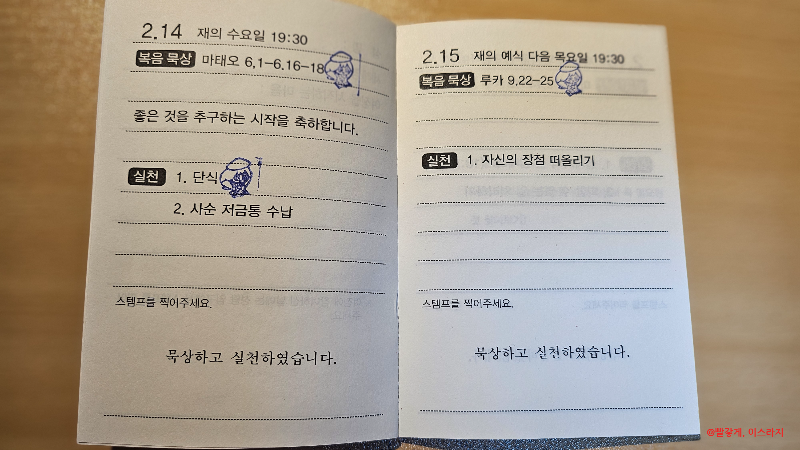 2.14 재의 수요일 19:30
복음 묵상 마태오 6,1-6.16-18
좋은 것을 추구하는 시작을 축하합니다.
실천 1. 단식
2. 사순 저금통 수납
스탬프를 찍어주세요.
묵상하고 실천하였습니다.
2.15 재의 예식 다음 목요일 19:30
복음 묵상 루카 9,22-25
실천 1. 자신의 장점 떠올리기
스탬프를 찍어주세요.
묵상하고 실천하였습니다.
@빨갛게, 이스라지